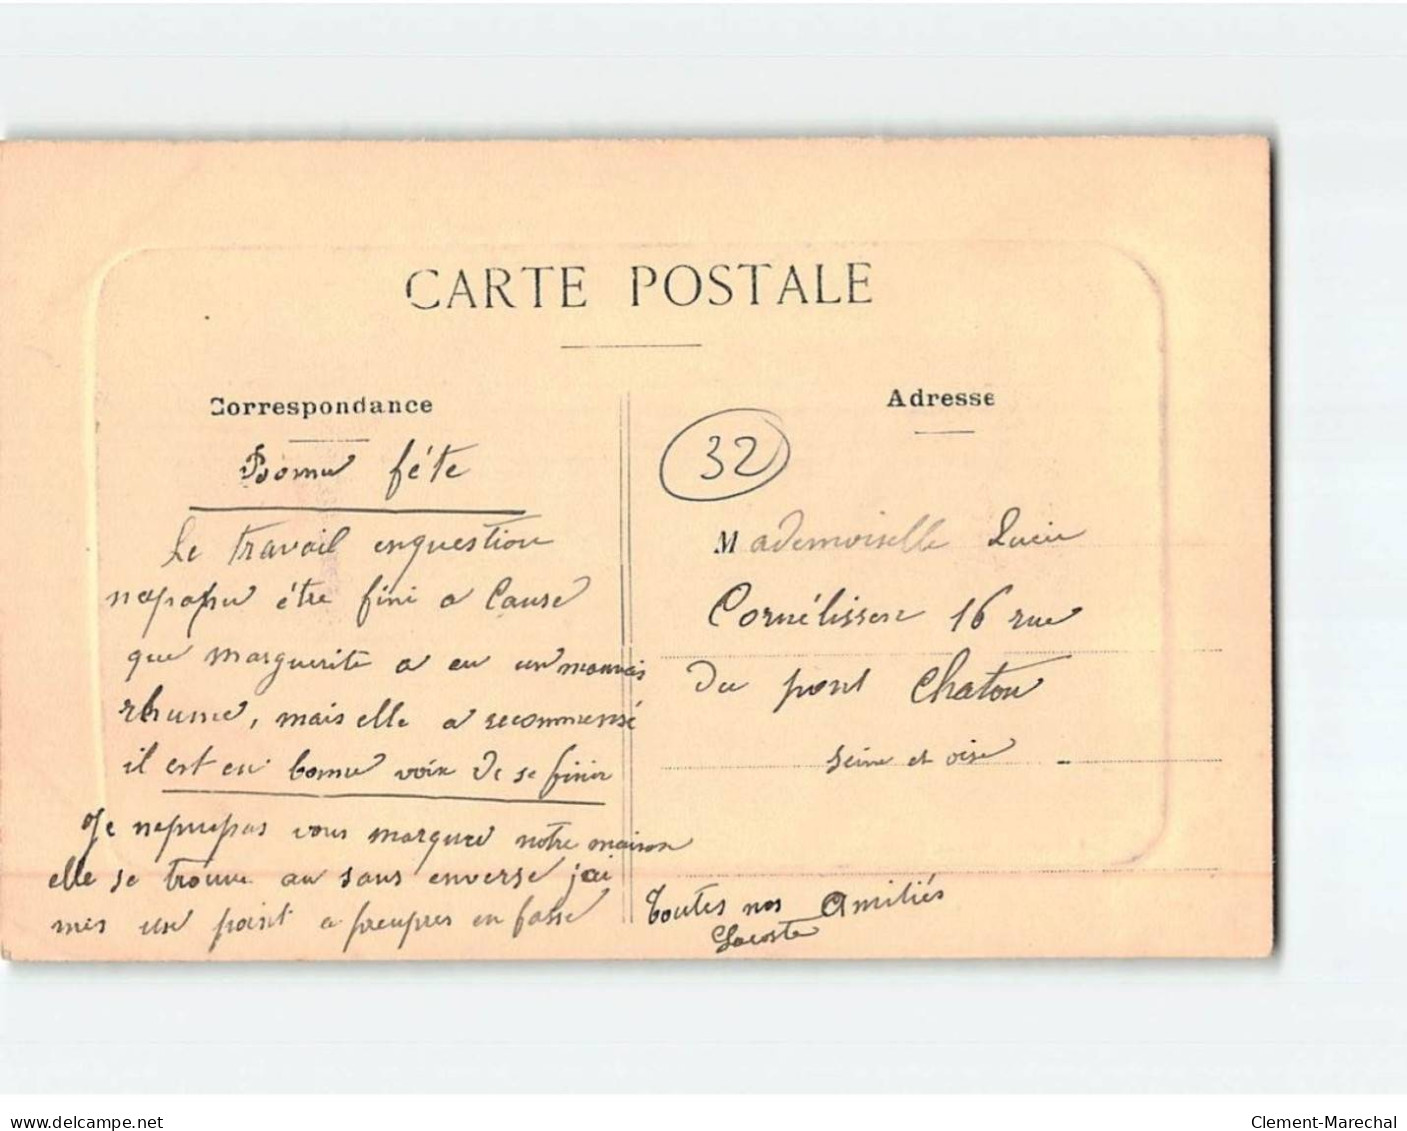 CARTE POSTALE
Correspondance
Bonne féte
Le travail enquestion
napapu étre fini a Cause
que marguerite a eu un mauvais
rhume, mais elle a recommensé
il est en bonne voix de se finir
Je nepuepas vous marquee notre maison
elle se trouve au sans enverse j'ai
mis un point a preupres en fasse
Adresse
32
Mademoiselle
Cornélissen 16 rue
du pont Chatou
Seine et oise
Toutes nos Amitiés
Lacoste
delcampe.net
Clement-Marechal